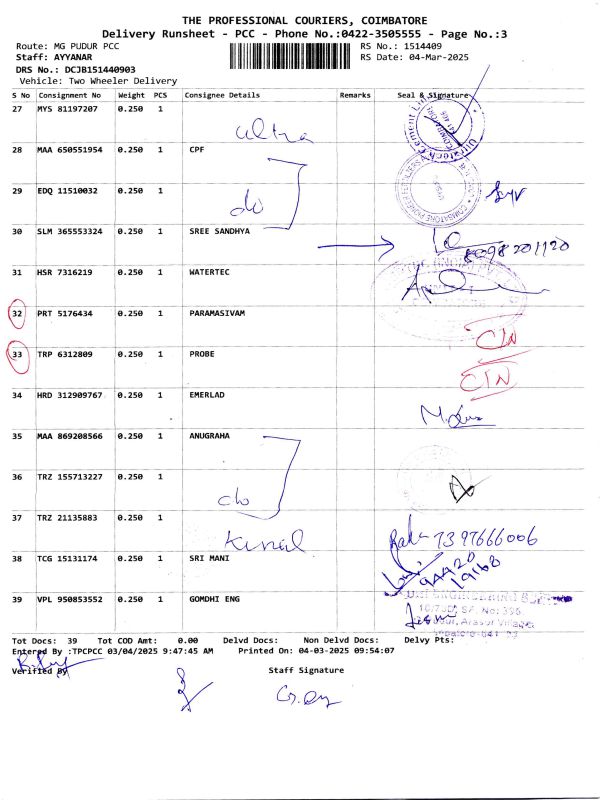 THE PROFESSIONAL COURIERS, COIMBATORE
Delivery Runsheet - PCC - Phone No.:0422-3505555 - Page No.:3
Route: MG PUDUR PCC
RS No.: 1514409
Staff: AYYANAR
RS Date: 04-Mar-2025
DRS No.: DCJB151440903
Vehicle: Two Wheeler Delivery
S No Consignment No Weight PCS Consignee Details Remarks Seal & Signature
27 MYS 81197207 0.250 1
ultra
28 MAA 650551954 0.250 1 CPF
29 EDQ 11510032 0.250 1
do
30 SLM 365553324 0.250 1 SREE SANDHYA
8098201120
31 HSR 7316219 0.250 1 WATERTEC
32 PRT 5176434 0.250 1 PARAMASIVAM
C/N
33 TRP 6312809 0.250 1 PROBE
C/N
34 HRD 312909767 0.250 1 EMERLAD
35 MAA 869208566 0.250 1 ANUGRAHA
36 TRZ 155713227 0.250 1
do
37 TRZ 21135883 0.250 1
7397666006
38 TCG 15131174 0.250 1 SRI MANI
39 VPL 950853552 0.250 1 GOMDHI ENG
Tot Docs: 39 Tot COD Amt: 0.00 Delvd Docs: Non Delvd Docs: Delvy Pts:
Entered By :TPCPCC 03/04/2025 9:47:45 AM Printed On: 04-03-2025 09:54:07
Verified By Staff Signature